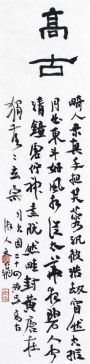 高古
畸人乘真手把芙蓉汎彼浩劫窅然空蹤
月出東斗好風相從太華夜碧人聞
清鐘虛佇神素脫然畦封黃唐在
獨落々玄宗 司空圖二十四詩品高古